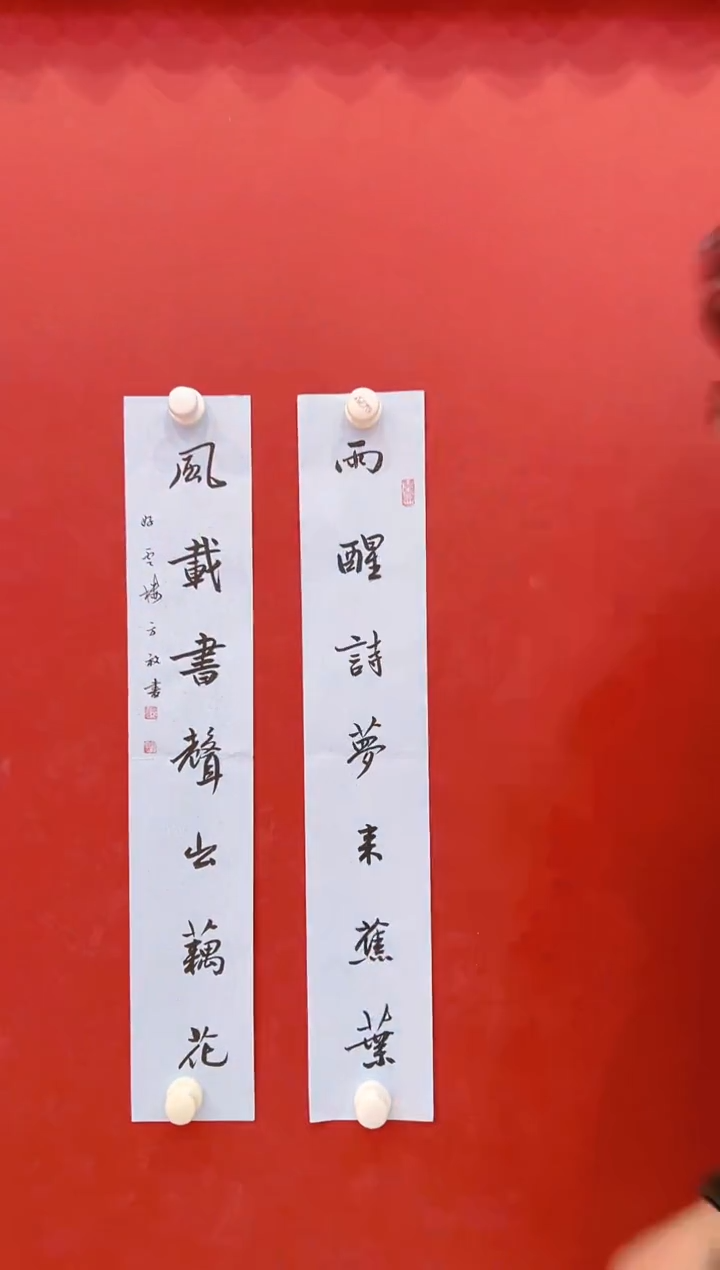 雨醒詩夢来蕉葉
風載書聲出藕花
好雲樓方放書